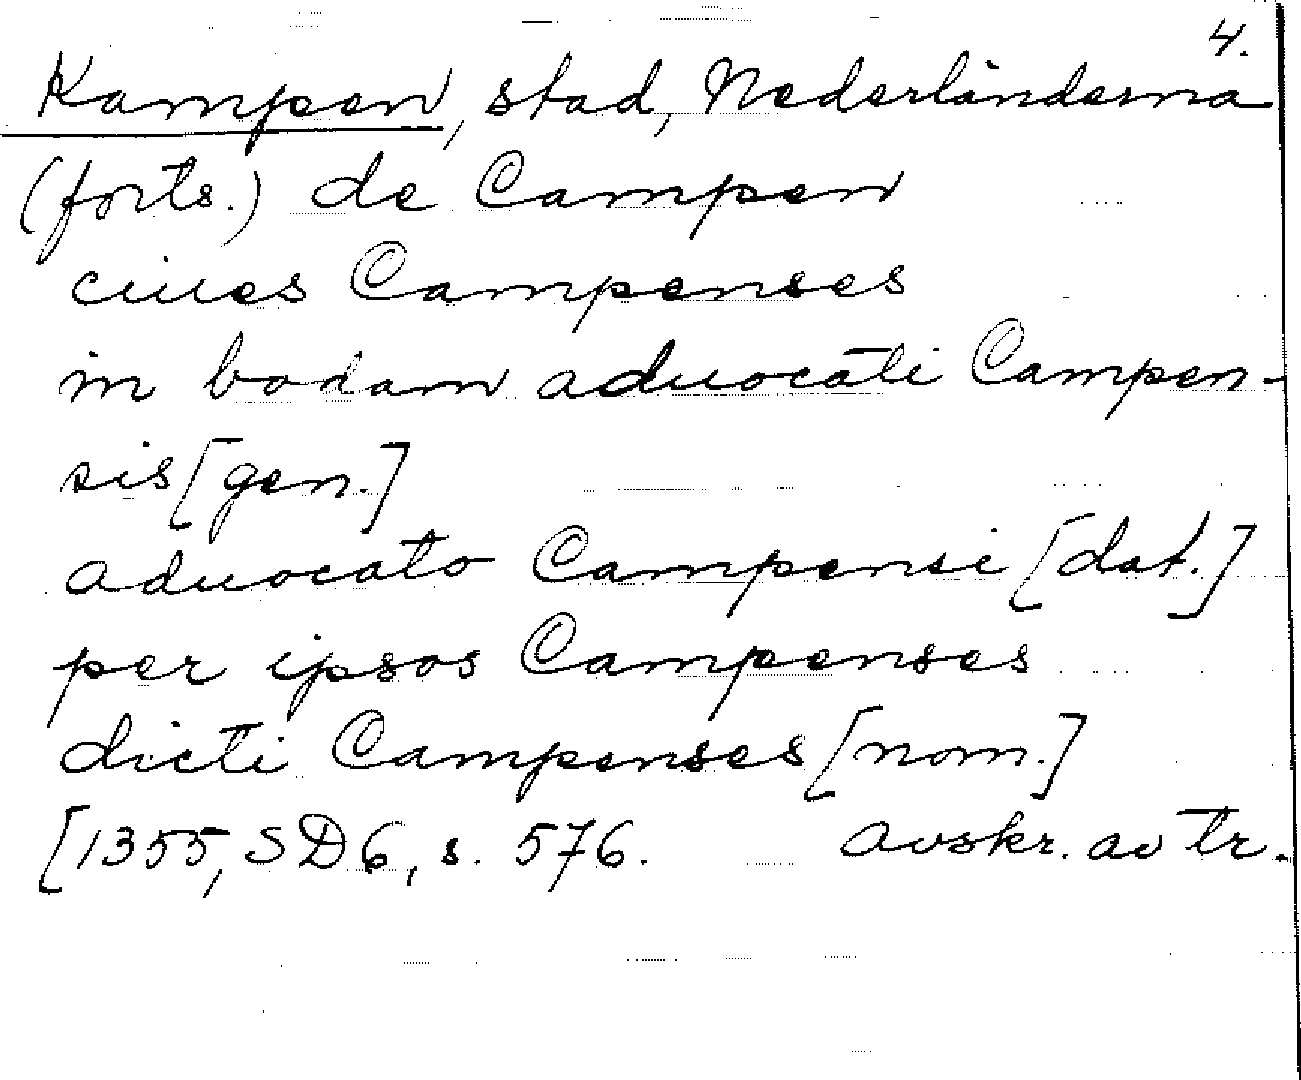 4.
Kampen, stad, Nederländerna
(forts.) de Campen
ciues Campenses
in bodam aduocati Campen-
sis [gen.]
aduocato Campensi [dat.]
per ipsos Campenses
dicti Campenses [nom.]
[1355, SD6, s. 576. avskr. av tr.